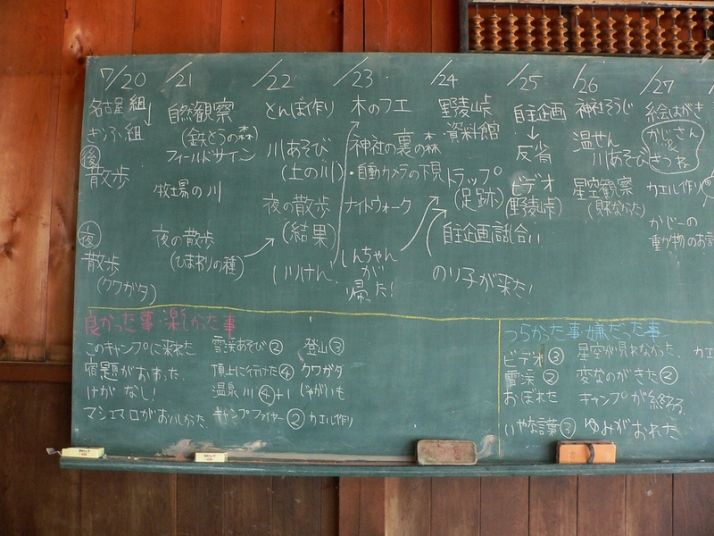 7/20
名古屋組
ぎふ組
後
散歩
夜
散歩
(クワガタ)
/21
自然観察
(鉄とうの森)
フィールドサイン
牧場の川
夜の散歩
(ひまわりの種)
/22
とんぼ作り
川あそび
(土の川)
夜の散歩
(結果)
/23
木のフエ
神社の裏の森
・自動カメラの下見
ナイトウォーク
しんちゃん
が
帰った!
/24
野麦峠
資料館
トラップ
(足跡)
自主企画話合い
のり子が来た!
/25
自主企画
反省
ビデオ
(野麦峠)
/26
神社そうじ
温せん
川あそび
星空観察
/27
絵はがき
かじさん
&
きつね
カエル作り
かじーの
動物のお話
良かった事・楽しかった事
このキャンプに来れた
宿題がおわった
けが なし!
マシュマロがおいしかった
雪渓あそび②
頂上に行けた④
温泉 川④+1
キャンプファイヤー②
登山③
クワガタ
じゃがいも
カエル作り
つらかった事・嫌だった事
ビデオ③
雪渓②
おぼれた
いやな言葉③
星空が見れなかった
変なのがきた②
キャンプが終わる
ゆみがおれた
カエ